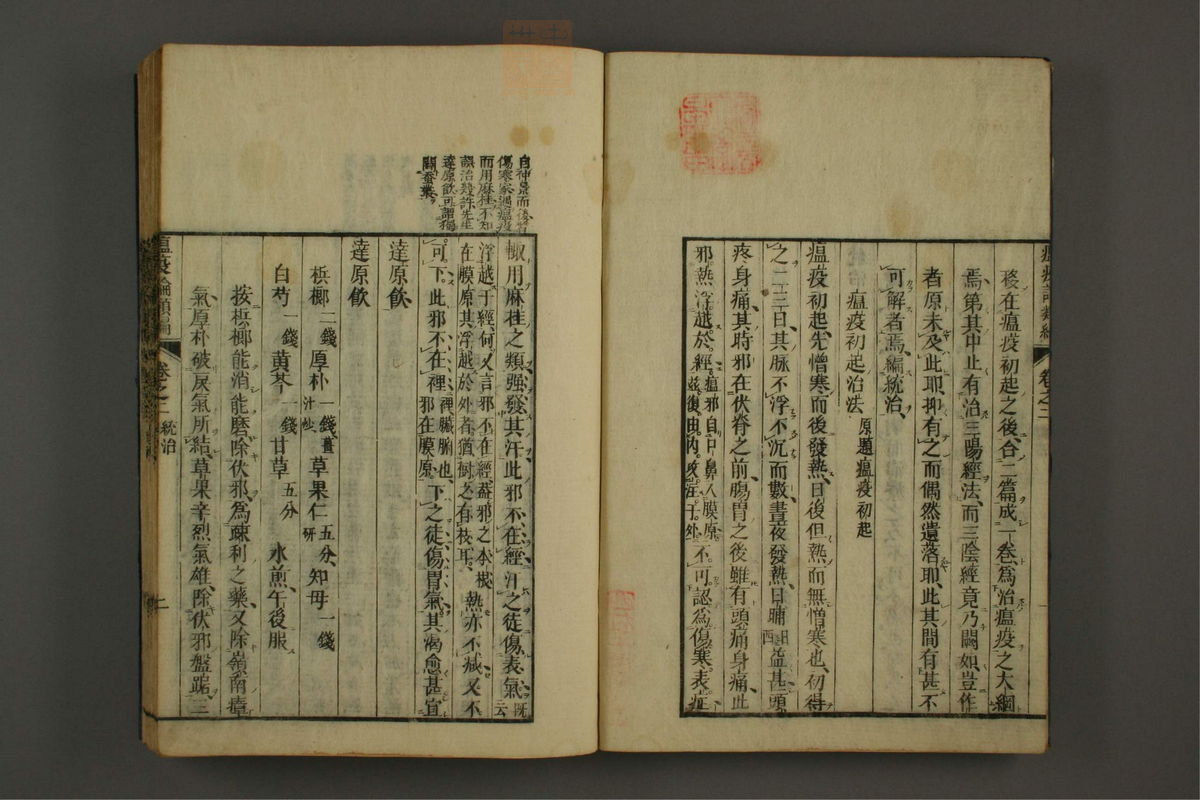 瘟疫論類編 卷之二
移在瘟疫初起之後、合二篇成一卷、爲治瘟疫之大綱
焉、第其中止有治三陽經法、而三陰經竟乃闕如、豈作
者原未及此耶、抑有之而偶然遺落耶、此其間有甚不
可解者焉、編統治、
瘟疫初起治法 原題瘟疫初起
瘟疫初起、先憎寒而後發熱、日後但熱而無憎寒也、初得
之二三日、其脉不浮不沉而數、晝夜發熱、日晡益甚、頭
疼身痛、其時邪在伏脊之前、腸胃之後、雖有頭痛身痛、此
邪熱浮越於經、瘟邪自口鼻入膜原。茲復由內。及注于外。不可認爲傷寒。表症
自仲景而後皆
傷寒家遇瘟疫
而用麻桂不知
誤治幾許先生
達原飲可謂獨
闢蚕叢。
輙用麻桂之類、强發其汗、此邪不在經、汗之徒傷表氣、既云
浮越于經、何又言邪不在經、葢邪之本根
在膜原、其浮越於外者、猶樹之有枝耳、熱亦不减、又不
可下。此邪不在裡、裡臟腑也、邪在膜原。下之徒傷胃氣、其渴愈甚、宜
達原飲、
達原飲
梹榔 二錢 厚朴 一錢薑汁炒 草果仁 五分、研 知母 一錢
白芍 一錢 黄芩 一錢 甘草 五分 水煎、午後服
按梹榔能消能磨、除伏邪、爲疎利之藥、又除嶺南瘴
氣、厚朴破戾氣所結、草果辛烈氣雄、除伏邪盤踞、三
瘟疫論類編 卷之二 統治 二